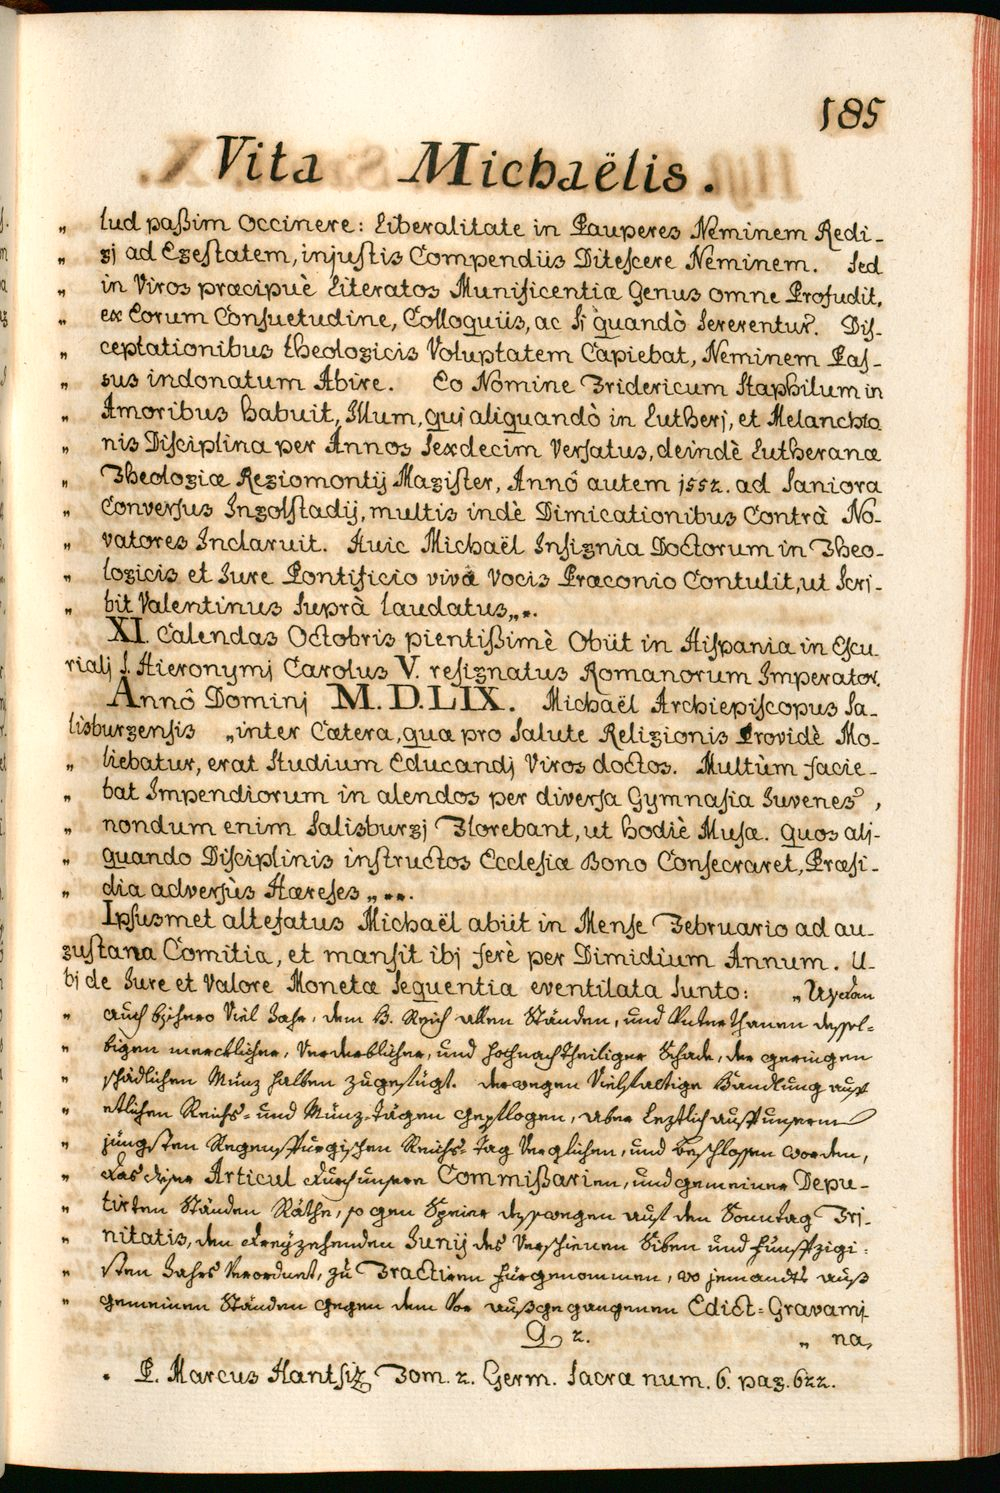 185
Vita Michaëlis.
„ lud paßim Occinere: Liberalitate in Pauperes Neminem Redi-
„ gj ad Egestatem, injustis Compendiis Ditescere Neminem. Sed
„ in Viros præcipuè Literatos Munificentiæ Genus omne Profudit,
„ ex Eorum Consuetudine, Colloquiis, ac Si quandò Sererentur. Dis-
„ ceptationibus theologicis Voluptatem Capiebat, Neminem Pas-
„ sus indonatum Abire. Eo Nomine Fridericum Staphilum in
„ Amoribus habuit, Illum, quj aliquandò in Lutherj, et Melanchto
„ nis Disciplina per Annos Sexdecim Versatus, deindè Lutheranæ
„ Theologiæ Regiomontij Magister, Annô autem 1552. ad Saniora
„ Conversus Ingolstadij, multis indè Dimicationibus Contrà No-
„ vatores Inclaruit. Huic Michaël Insignia Doctorum in Theo-
„ logicis et Jure Pontificio vivâ Vocis Præconio Contulit, ut Scri-
„ bit Valentinus Suprà laudatus„*.
XI. Calendas Octobris pientißimè Obiit in Hispania in Escu
rialj S. Hieronymj Carolus V. resignatus Romanorum Imperator.
Annô Dominj M.D.LIX. Michaël Archiepiscopus Sa-
lisburgensis „inter Cætera, quæ pro Salute Religionis Providè Mo-
„ liebatur, erat Studium Educandj Viros doctos. Multùm facie-
„ bat Impendiorum in alendos per diversa Gymnasia Juvenes,
„ nondum enim Salisburgj Florebant, ut hodiè Musæ. quos ali-
„ quando Disciplinis instructos Ecclesiæ Bono Consecraret, Præsi-
„ dia adversùs Hæreses„**.
Ipsusmet altefatus Michaël abiit in Mense Februario ad au-
gustana Comitia, et mansit ibj ferè per Dimidium Annum. U-
bj de Jure et Valore Monetæ Sequentia eventilata Sunto: „
„ auch bißhero Viel Jahr, dem H. Reich allen Ständen, und Unterthanen dessel-
„ bigen mercklicher, Verderblicher, und hochnachtheiliger Schade, der geringen
„ schädlichen Münz halben zugefügt. derwegen Vielfaltige Handlung auf
„ etlichen Reichs- und Münz-tägen gepflogen, aber Leztlich auff unserm
„ jüngsten Regenspurgischen Reichs-tag Verglichen, und beschlossen worden,
„ das dieser Articul durch unsere Commißarien, und gemeiner Depu-
„ tirten Ständen Räthe, so gen Speier deßwegen auf den Sonntag Tri-
„ nitatis, den dreyzehenden Junij des Verschienen Siben und fünffzigi-
„ sten Jahrs Verordnet, zu Tractiren fürgenommen, wo jemandts auß
„ gemeinen Ständen gegen dem Vor außgegangenen Edict-Gravami
2. „ na,
* P. Marcus Hantsiz Tom. 2. Germ. Sacræ num. 6. pag. 622.